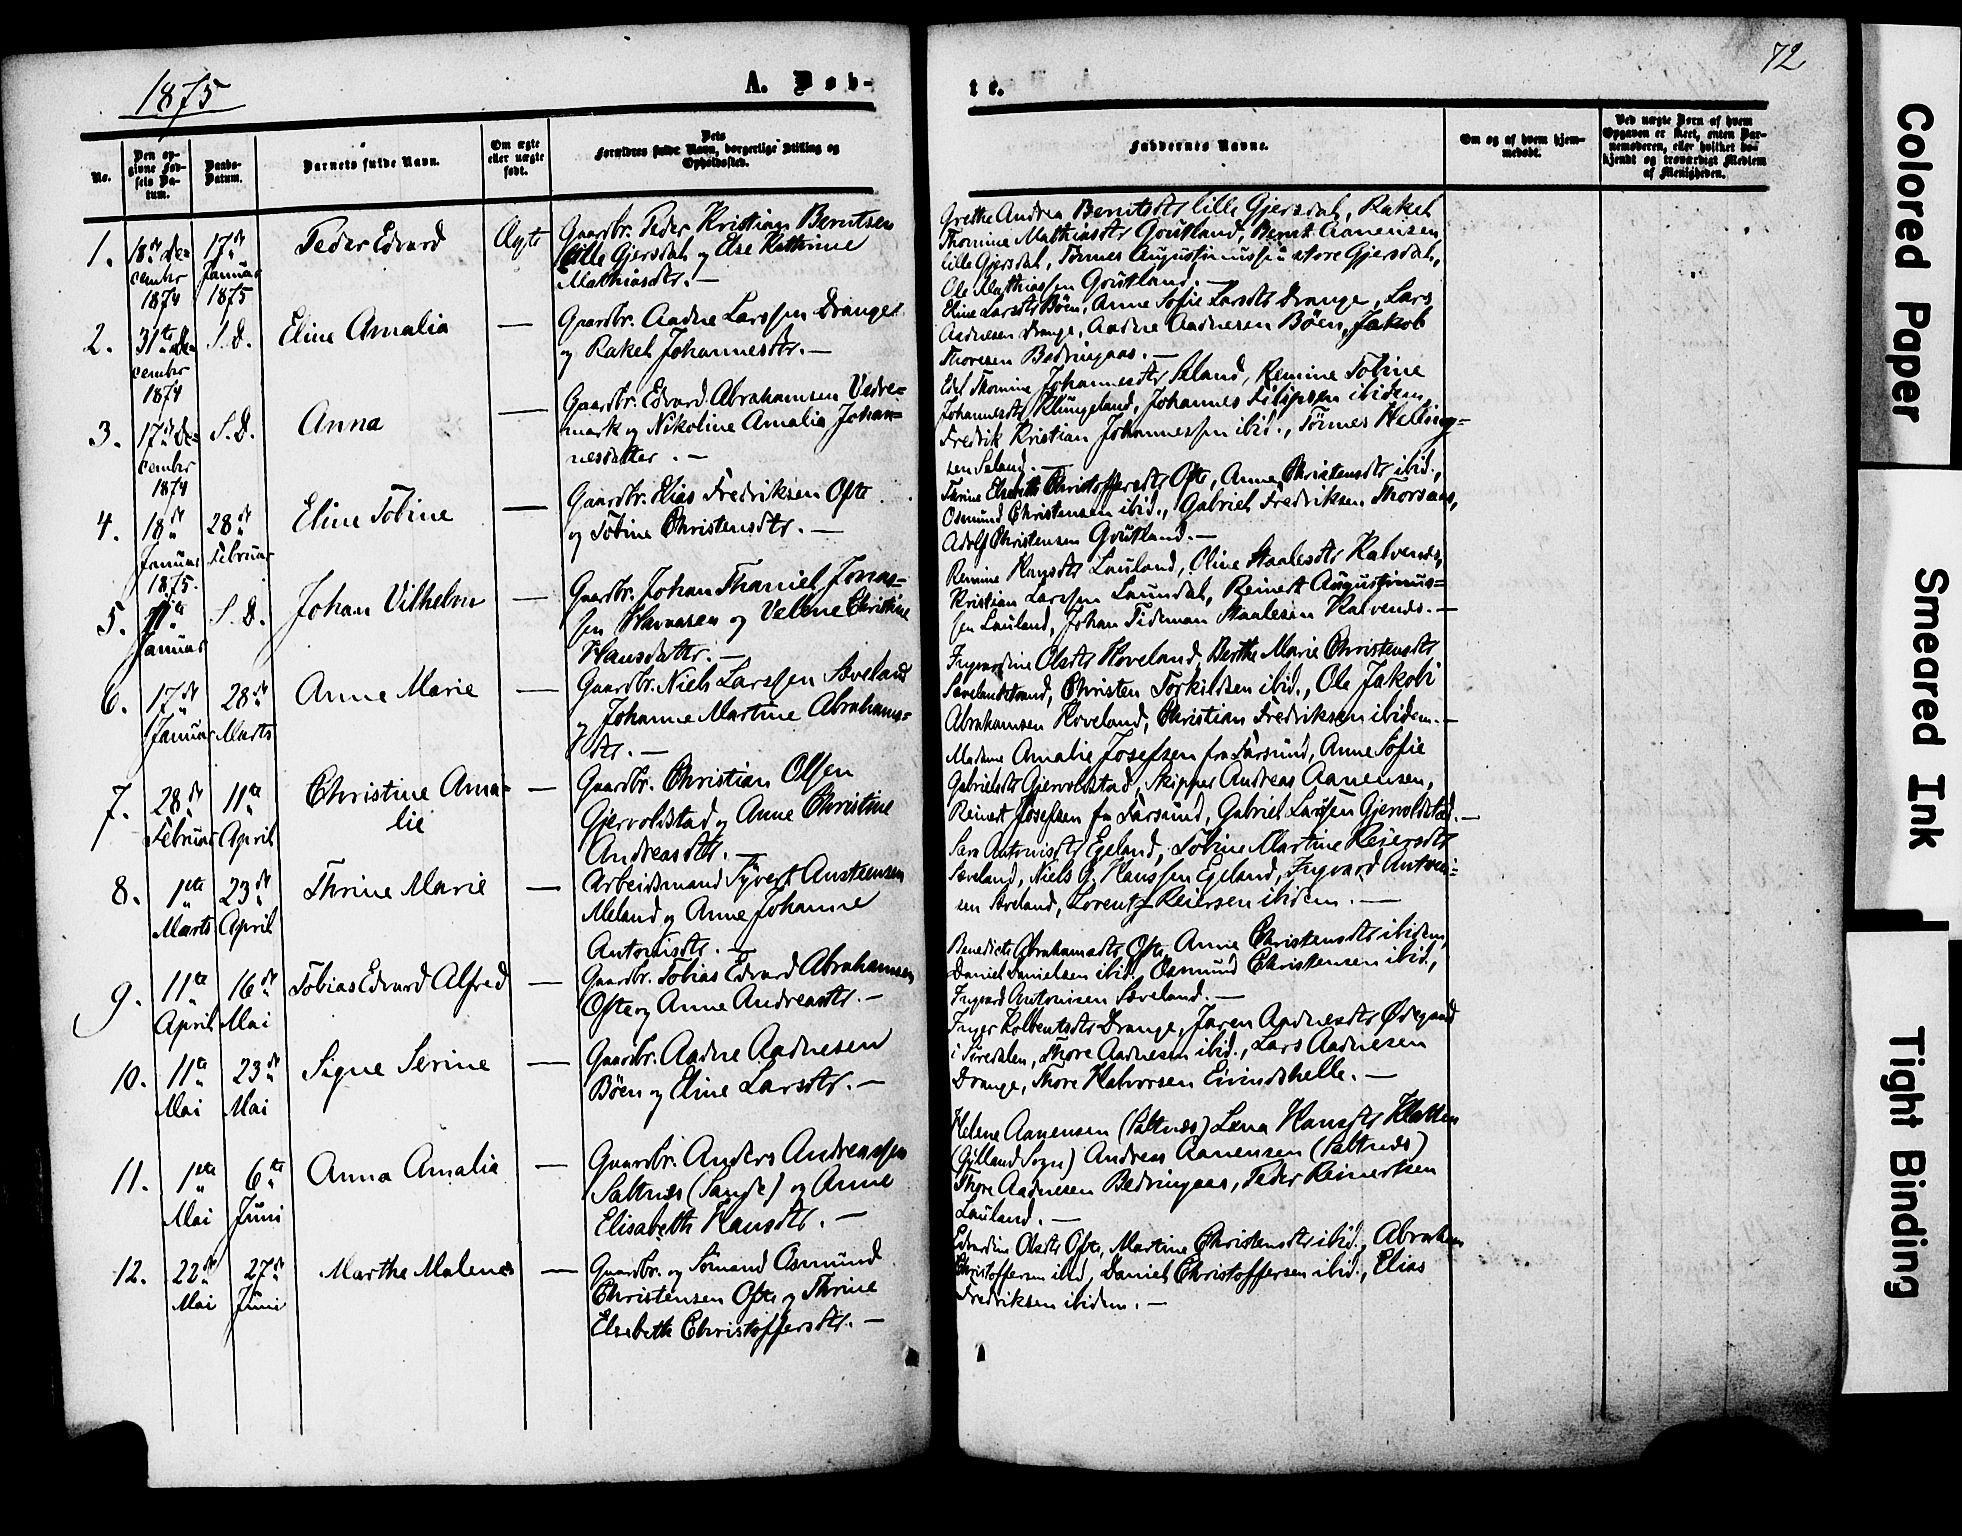 1875
A. Døb-
te.
72
No.
Den op-
givne Fød-
sels Da-
tum.
Daabs-
Datum.
Barnets fulde Navn.
Om ægte
eller uægte
født.
Dets
Forældres fulde Navn, borgerlige Stilling og
Opholdssted.
Faddernes Navne.
Om og af hvem hjem-
medøbt.
Ved uægte Børn af hvem
Opgaven er skeet, enten Bar-
nemoderen, eller hvilket be-
kjendt og troværdigt Medlem
af Menigheden.
1.
18de De-
cember
1874
17de
Januar
1875
Peder Edvard
Ægte
Gaardbr. Peder Kristian Berntsen
lille Gjersdal og Else Kathrine
Mathiasdtr. —
Grethe Andrea Berntsdtr lille Gjersdal, Rakel
Thomine Mathiasdtr Goutland, Bernt Aanensen
lille Gjersdal, Tønnes Augustinussen store Gjersdal,
Ole Mathiassen Goutland. —
2.
31te De-
cember
1874
S. D.
Eline Amalia
—
Gaardbr. Aadne Larssen Drange
og Rakel Johannesdtr. —
Eline Larsdtr Böen, Anne Sofie Larsdtr Drange, Lars
Aadnesen Drange, Aadne Aadnesen Böen, Jakob
Thoresen Bedringaas. —
3.
17de De-
cember
1874
S. D.
Anna
—
Gaardbr. Edvard Abrahamsen Vedre-
mark og Nikoline Amalia Johan-
nesdatter. —
Edel Thomine Johannesdtr Sæland, Remine Tobine
Johannesdtr Klungeland, Johannes Filipsen ibidem,
Fredrik Kristian Johannessen ibid., Tönnes Helliesen
Sæland. —
4.
18de
Januar
1875.
28de
Februar
Eline Tobine
—
Gaardbr. Elias Fredriksen Ofte
og Tobine Christensdtr. —
Thrine Elsebeth Christoffersdtr Ofte, Anne Christensdtr ibid.,
Osmund Christensen ibid., Gabriel Fredriksen Thorsaas,
Adolf Christensen Goutland. —
5.
11te
Januar
S. D.
Johan Vilhelm
—
Gaardbr. Johan Thaniel Jonas-
sen Havaasen og Velene Christine
Hansdatter. —
Remine Hansdtr Lauland, Oline Staalesdtr Kalvenes,
Kristian Larssen Laundal, Reinert Augustinus-
sen Lauland, Johan Tideman Staalesen Kalvenes. —
6.
17de
Januar
28de
Marts
Anne Marie
—
Gaardbr. Niels Larssen Sæveland
og Johanne Martine Abrahams-
dtr. —
Ingvardine Olsdtr Hoveland, Berthe Marie Christensdtr
Sævelandstrand, Christen Torkildsen ibid., Ole Jakob
Abrahamsen Hoveland, Christian Fredriksen ibidem. —
7.
28de
Februar
11te
April
Christine Ama-
lie
—
Gaardbr. Christian Olsen
Gjervoldstad og Anne Christine
Andreasdtr. —
Madame Amalie Josefsen fra Farsund, Anne Sofie
Gabrielsdtr Gjervoldstad, Skipper Andreas Aanensen,
Reinert Josefsen fra Farsund, Gabriel Larssen Gjervoldstad. —
8.
1ste
Marts
23de
April
Thrine Marie
—
Arbeidsmand Syvert Austensen
Meland og Anne Johanne
Antonisdtr. —
Sara Antonisdtr Egeland, Tobine Martine Reiersdtr
Sæveland, Niels G. Hanssen Egeland, Ingvard Antoni-
sen Sæveland, Lorentz Reiersen ibidem. —
9.
11te
April
16de
Mai
Tobias Edvard Alfred
—
Gaardbr. Tobias Edvard Abrahamsen
Ofte og Anne Andreasdtr. —
Benedicte Abrahamsdtr Ofte, Anne Christensdtr ibidem,
Daniel Danielsen ibid., Osmund Christensen ibid.,
Ingvard Antonisen Sæveland. —
10.
11te
Mai
23de
Mai
Signe Serine
—
Gaardbr. Aadne Aadnesen
Böen og Eline Larsdtr. —
Inger Kolbentsdtr Drange, Jaren Aadnesdtr Ødegaard
i Siredalen, Thore Aadnesen ibid., Lars Aadnesen
Drange, Thore Halvorsen Eivindshelle. —
11.
1ste
Mai
6te
Juni
Anna Amalia
—
Gaardbr. Anders Andreassen
Saltnæs (Sande) og Anne
Elisabeth Hansdtr. —
Helene Aanensen (Saltnæs) Lena Hansdtr
(Gylland Sogn) Andreas Aanensen (Saltnæs)
Thore Aadnesen Bedringaas, Peder Reinertsen
Lauland. —
12.
22de
Mai
27de
Juni
Marthe Malene
—
Gaardbr. og Sömand Osmund
Christensen Ofte og Thrine
Elsebeth Christoffersdtr. —
Edvardine Olsdtr Ofte, Martine Christensdtr ibid., Abraham
Christoffersen ibid, Daniel Christoffersen ibid., Elias
Fredriksen ibidem. —
Colored Paper
Smeared Ink
Tight Binding